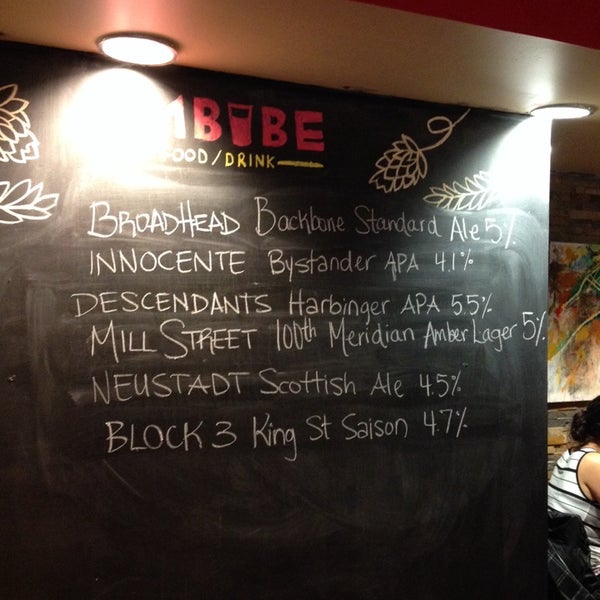 MBIBE
FOOD/DRINK
BROADHEAD Backbone Standard Ale 5%
INNOCENTE Bystander APA 4.1%
DESCENDANTS Harbinger APA 5.5%
MILL STREET 100th Meridian Amber Lager 5%
NEUSTADT Scottish Ale 4.5%
BLOCK 3 King St Saison 4.7%